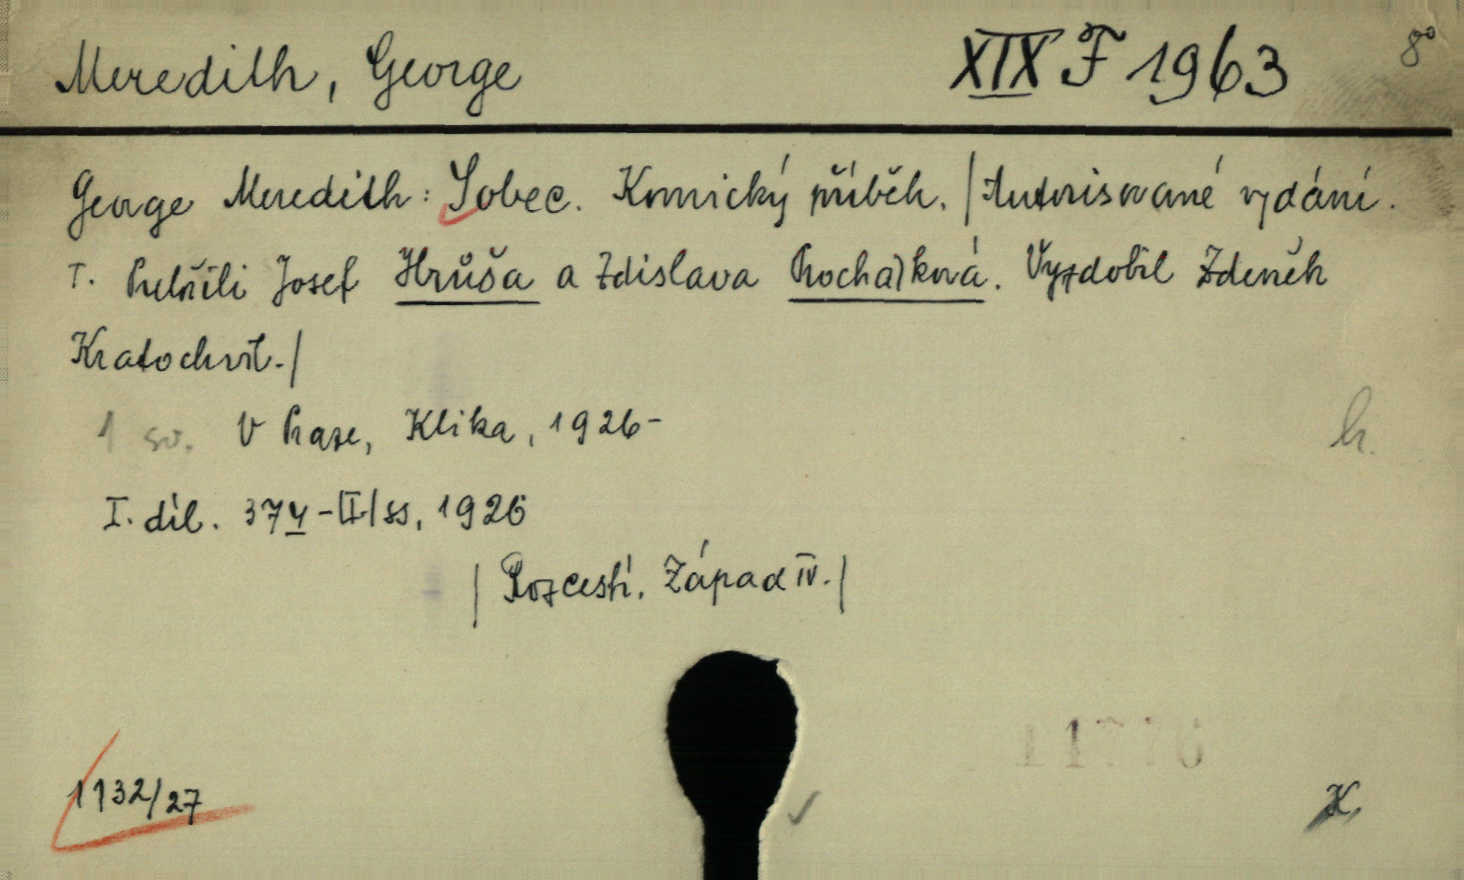 Meredith, George XIX F 1963 8°
George Meredith: Sobec. Komický příběh. /Autorisované vydání.
T. Přeložili Josef Hrůša a Zdislava Procházková. Vyzdobil Zdeněk
Kratochvíl./
1 sv. V Praze, Klika, 1926- h.
I. díl. 374-[I]/ss, 1926
/Rozcestí. Západ IV./
1132/27 K